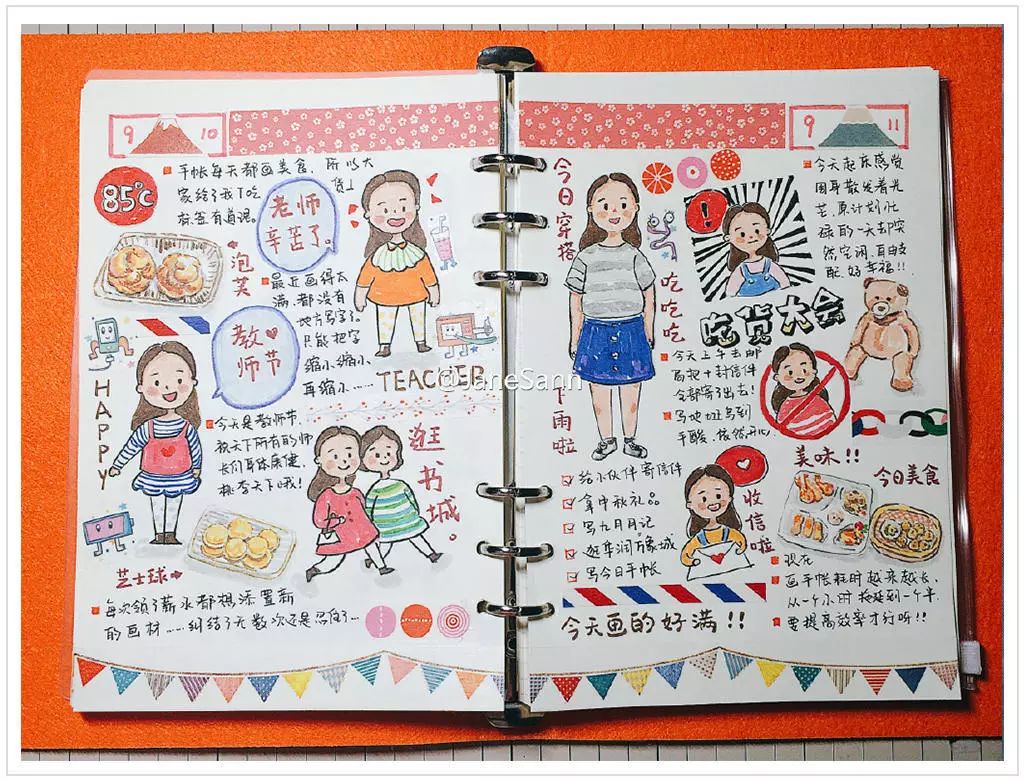 9
10
85℃
手帐每天都画美食,所以大
家给了我下吃货!
标签有道理。
老师
辛苦了。
泡芙
最近画得太
满,都没有
地方写字了。
只能把字
缩小、缩小、
再缩小……
TEACHER
教师节
HAPPY
今天是教师节,
祝天下所有的师
长们身体康健,
桃李天下哦!
逛书城。
芝士球
每次领了薪水都想添置新
的画材……纠结了无数次还是忍住了…
@JaneSann
9
11
今日穿搭
今天起床感觉
周身散发着光
芒,原计划忙
碌的一天却突
然空闲、自由支
配,好幸福!!
吃吃吃
吃货大会
今天上午去邮
局把十封信件
全部寄了出去!
写地址写到
手酸,依然开心
下雨啦
美味!!
今日美食
给小伙伴寄信件
拿中秋礼品
写九月月记
逛华润万象城
写今日手帐
收信啦
现在
画手帐耗时越来越长,
从一个小时拖延到一个半
要提高效率才行听!!
今天画的好满!!